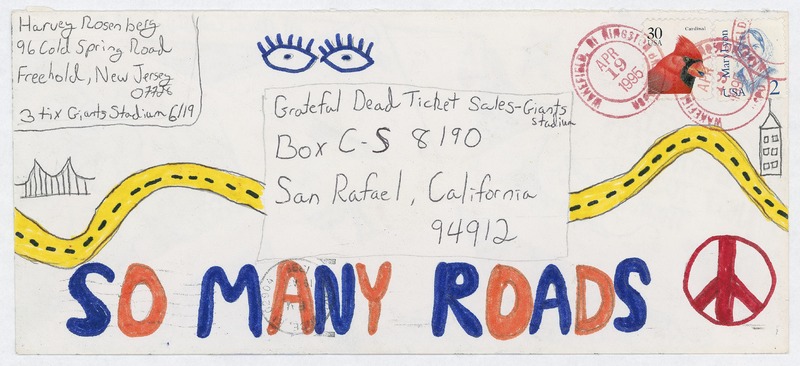 Harvey Rosenberg
96 Cold Spring Road
Freehold, New Jersey
07728
3 tix Giants Stadium 6/19
Grateful Dead Ticket Sales-Giants
Stadium
Box C-S 8190
San Rafael, California
94912
30
USA
Cardinal
Mary Lyon
USA
2
WAKEFIELD, RI KINGSTON
APR
19
1995
WAKEFIELD
SO MANY ROADS